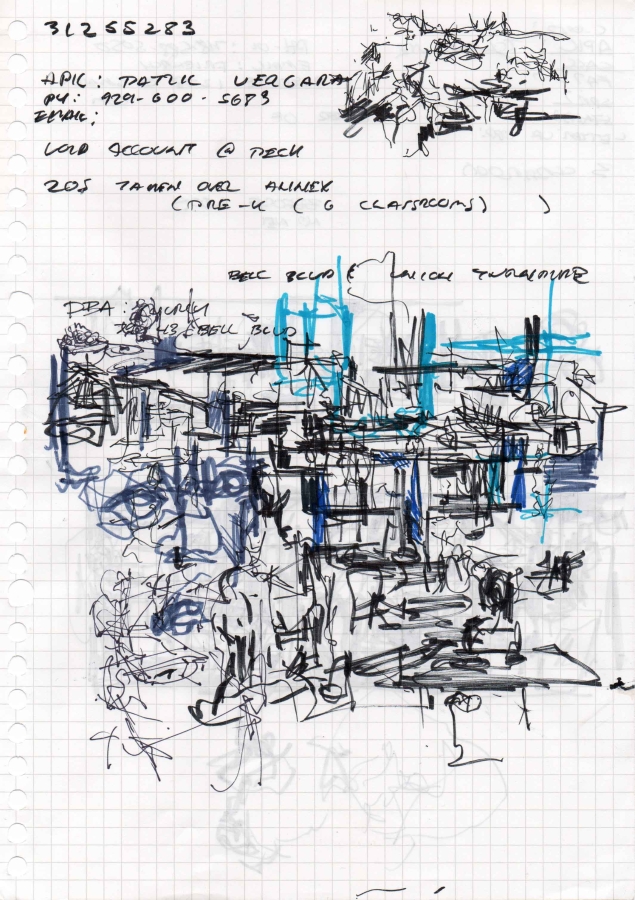 31255283
APIC: PATRIC VERGARA
PH: 929-600-5683
EMAIL:
VOID ACCOUNT @ DECK
205 TAKEN OVER ANNEX
(PRE-K (6 CLASSROOMS) )
BELL BLVD & UNION TURNPIKE
DBA:
BELL BLVD